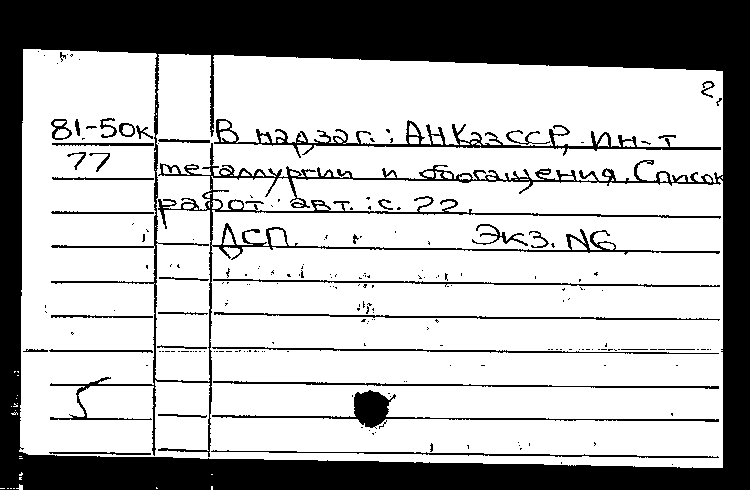 2.
81-50к В надзаг.: АН КазССР, Ин-т
77 металлургии и обогащения. Список
работ авт.: с. 22.
ДСП. Экз. N6.
5